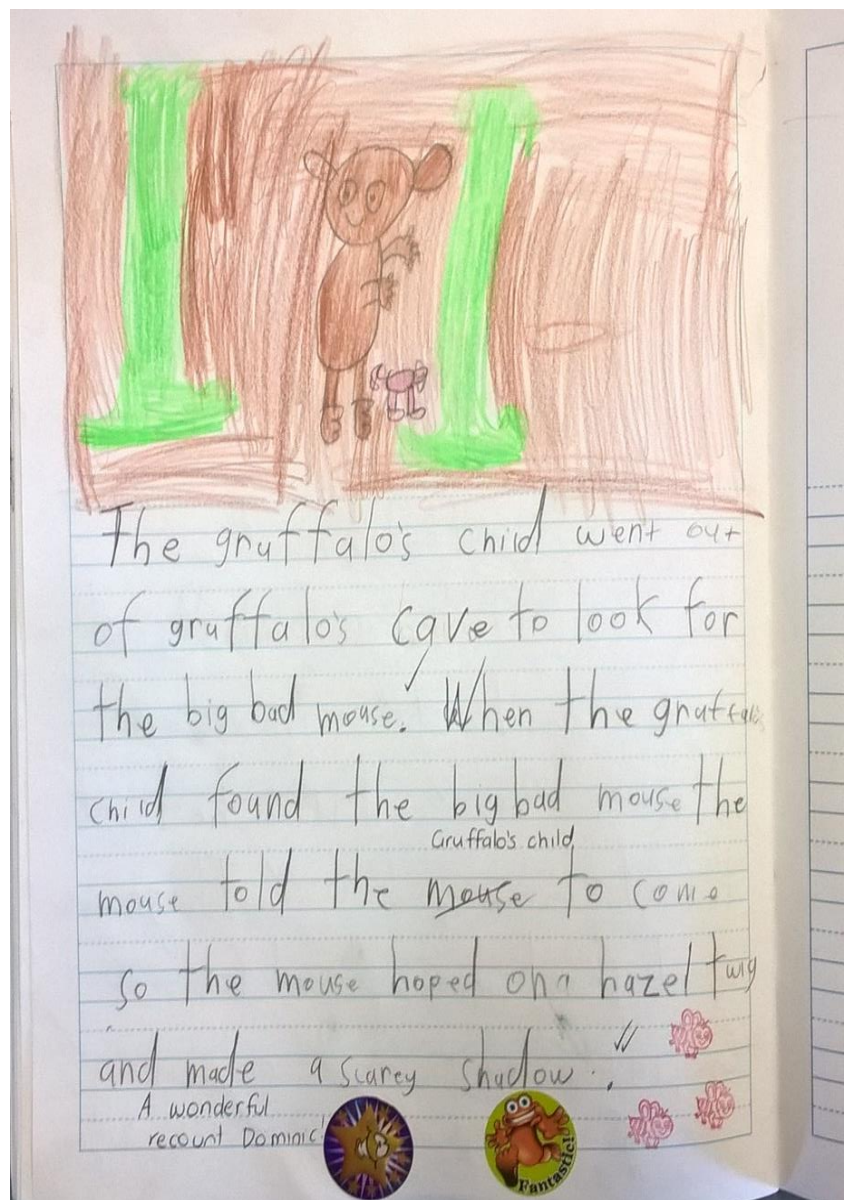 The gruffalo's child went out
of gruffalo's cave to look for
the big bad mouse. When the gruffalo's
child found the big bad mouse the
Gruffalo's child
mouse told the mouse to come
so the mouse hoped on a hazel twig
and made a scarey shadow.
A wonderful
recount Dominic!
Fantastic!